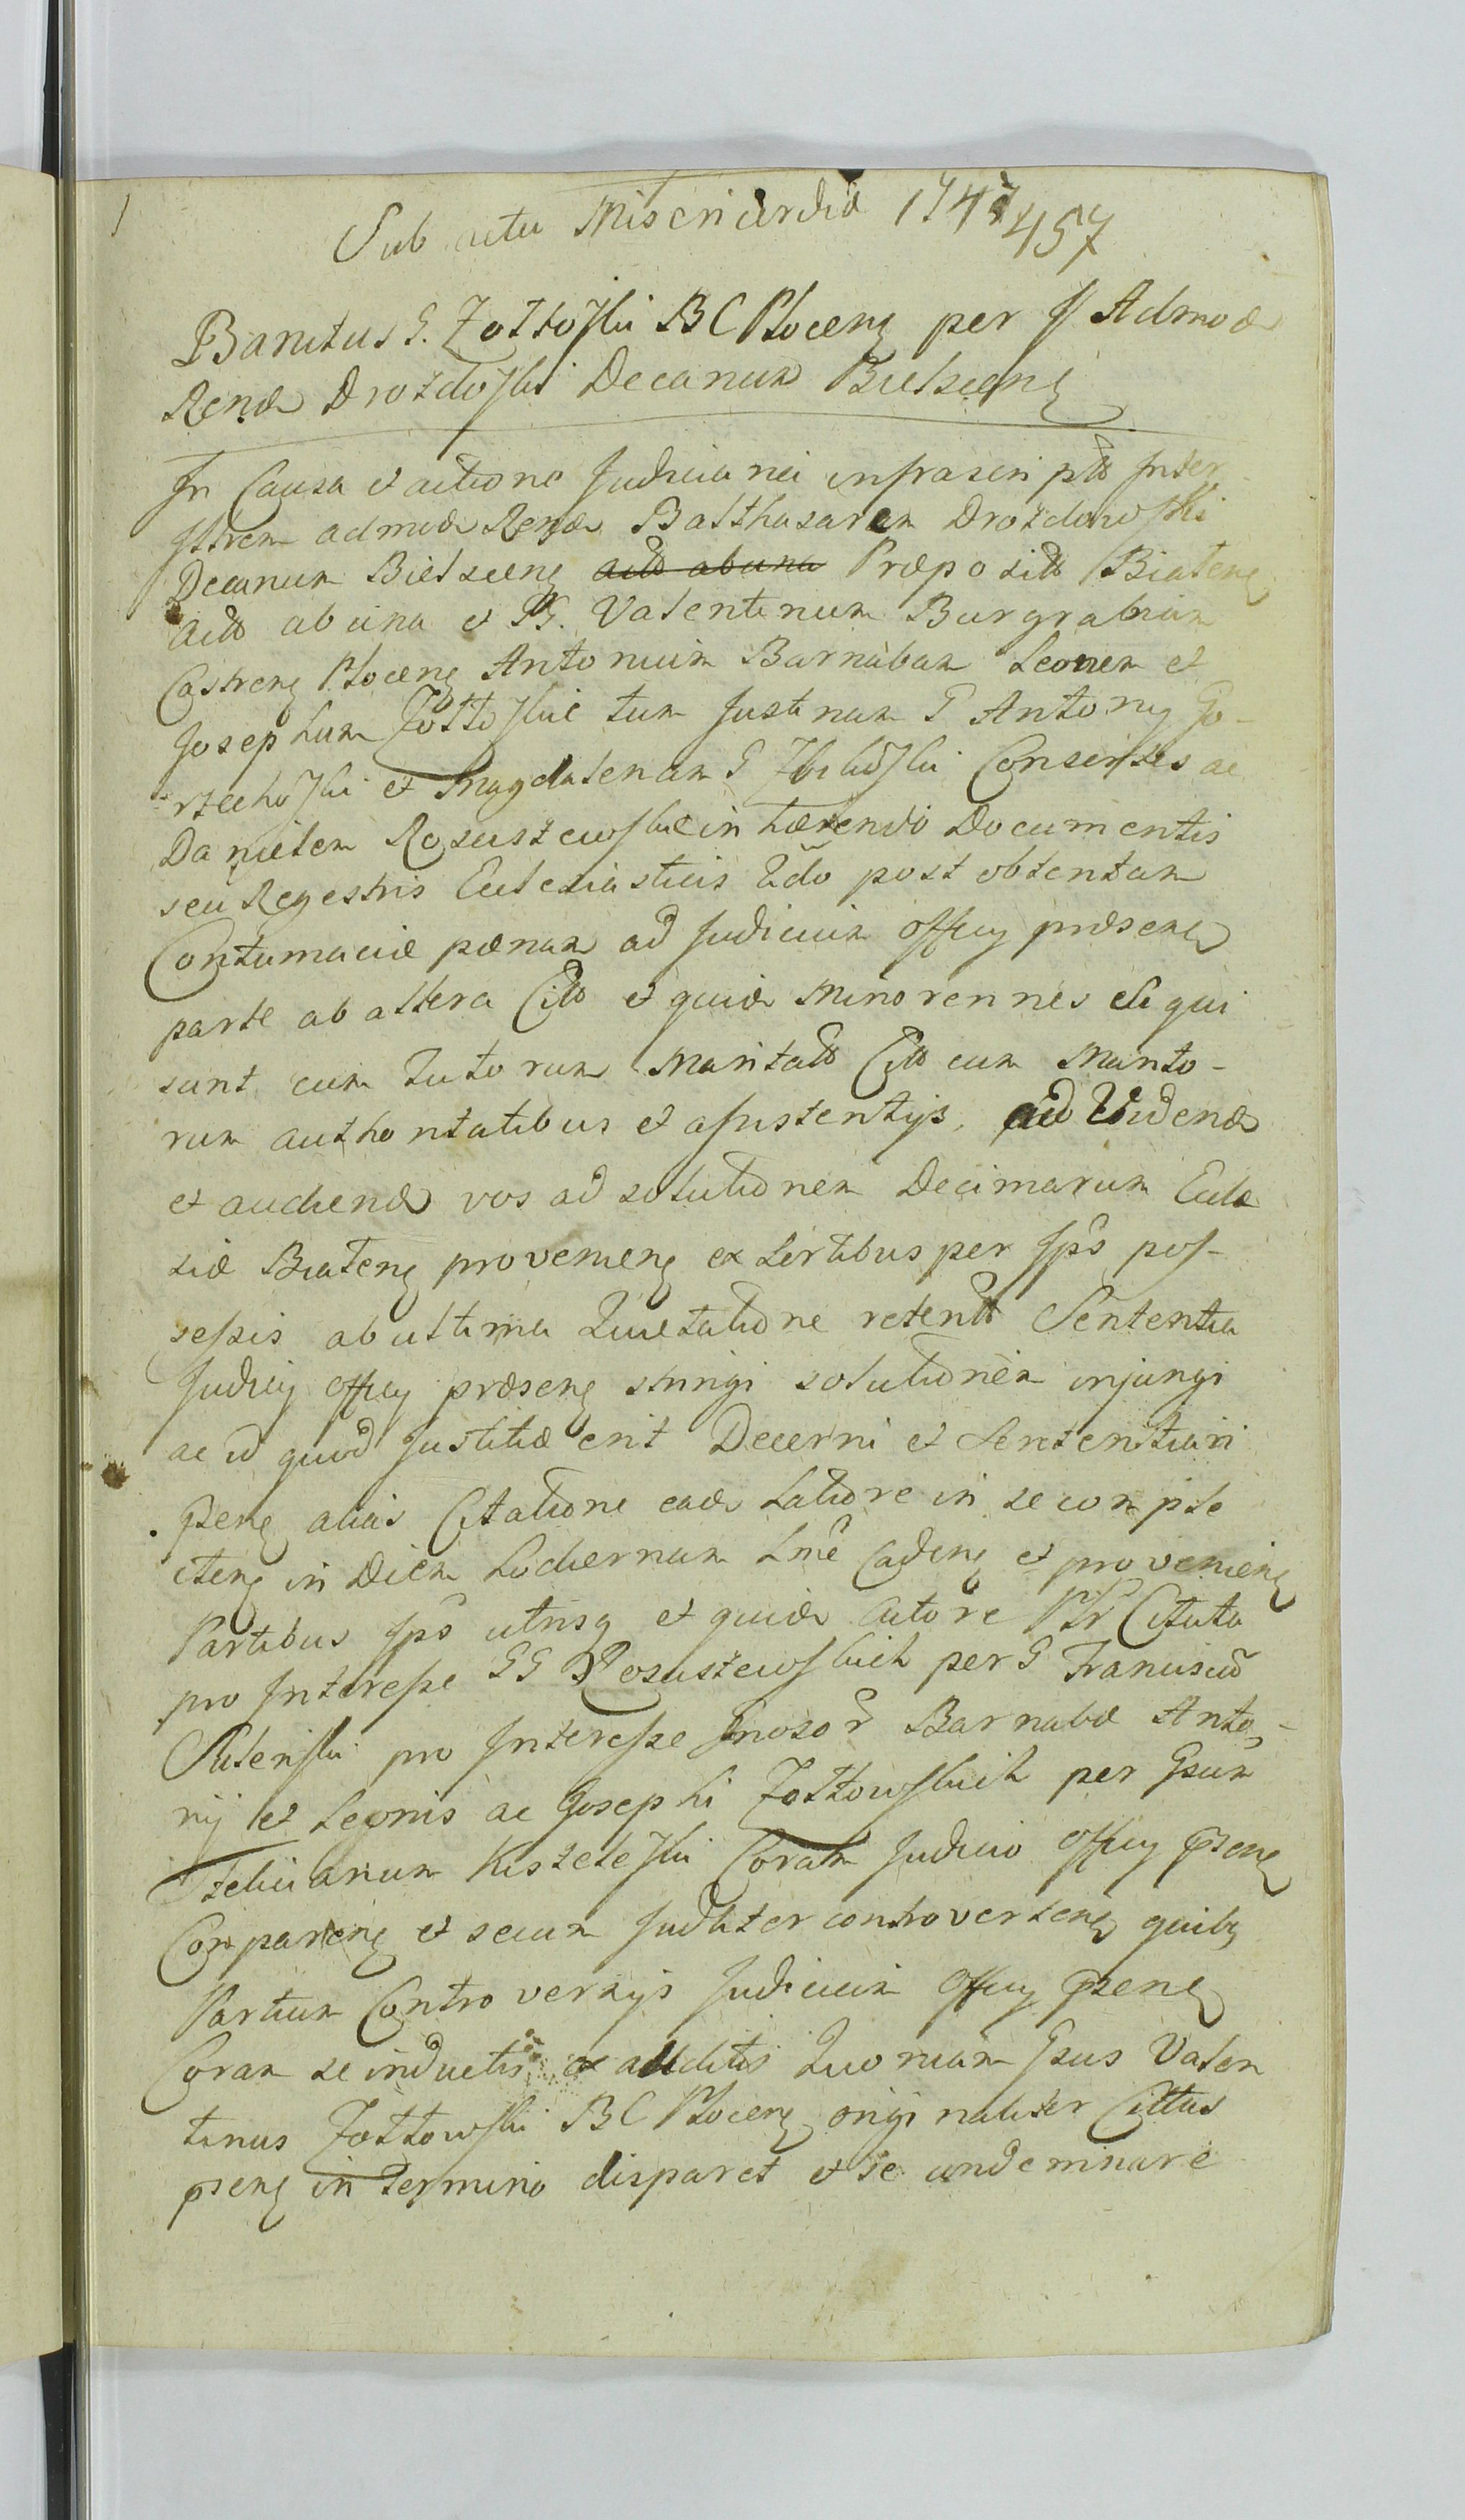 Sub actu Misericordiæ 1747
457
Banitus G. Zołtoski BC Płocenς per Jl Admod
Rend Drozdoski Decanum Bielscenς
In Causa et actione Judiciarie infrascripta Inter
Jlltrem admod Rend Balthasarem Drozdowski
Decanum Bielscenς actō ab una Præpositō Białenς
actō ab una et GG. Valentinum Burgrabium
Castrenς Płocenς Antonium Barnabam Leonem et
Josephum Zołtoskie tum Justinam G Antonÿ Go-
rzechoski et Magdalenam G Zbikoski Consortes ac
Danielem Rosciszewskie inhærendo Documentis
seu Regestris Ecclesiasticis Vdo post obtentam
Contumaciæ pœnam ad Judicium Officÿ præsenς
parte ab altera Cittō et quid Minorennes si qui
sunt cum Tutorum Maritatō Cittō cum Marito-
rum authoritatibus et assistentÿs, ad Vidend
et audiend vos ad solutionem Decimarum Eccle
siæ Białenς provenienς ex Sortibus per Ipos pos-
sessis ab ultima Quietatione retentō Sententia
Judicÿ Officÿ præsenς stringi solutionem injungi
ac id quod Justitiæ erit Decerni et Sententiari
pzenς alias Citatione ead Latiore in se comple
ctenς in Diem hodiernam Lme Cadenς et provenienς
Partibus Ipis utrisq et quid Actore Ptr Citata
pro Interesse GG Rosciszewskich per G Franciscū
Rutenski pro Interesse Gnosor Barnabæ Anto-
nij et Leonis ac Josephi Zołtowskich per Gsum
Felicianum Kisielески Coram Judicio Officÿ pzenς
Comparenς et secum Judliter controvertenς quibς
Partium Controversÿs Judicium Officÿ pzenς
Coram se inductis ex auditis Quoniam Gsus Valen
tinus Zołtowski BC Płocenς originaliter Cittus
pzenς in Termino disparet et se condemnare